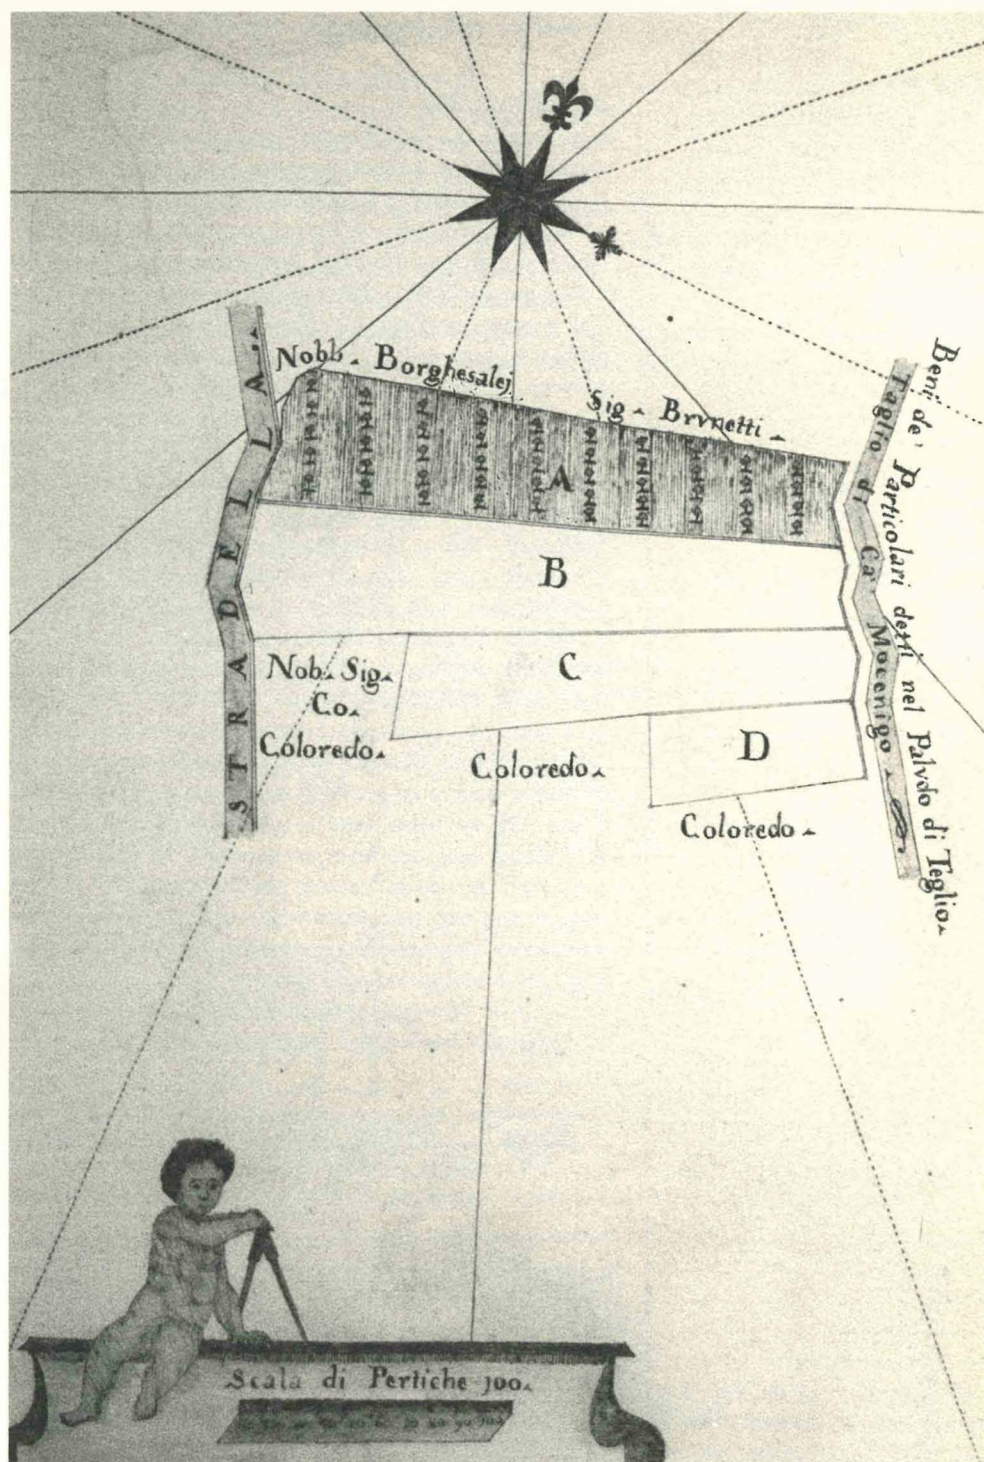 Nobb. Borghesalej
Sig. Brvnetti.
STRADELLA
A
B
C
D
Nob. Sig.
Co.
Coloredo.
Coloredo.
Coloredo.
Taglio di Ca' Mocenigo.
Beni de' Particolari detti nel Palvdo di Teglio.
Scala di Pertiche 100.